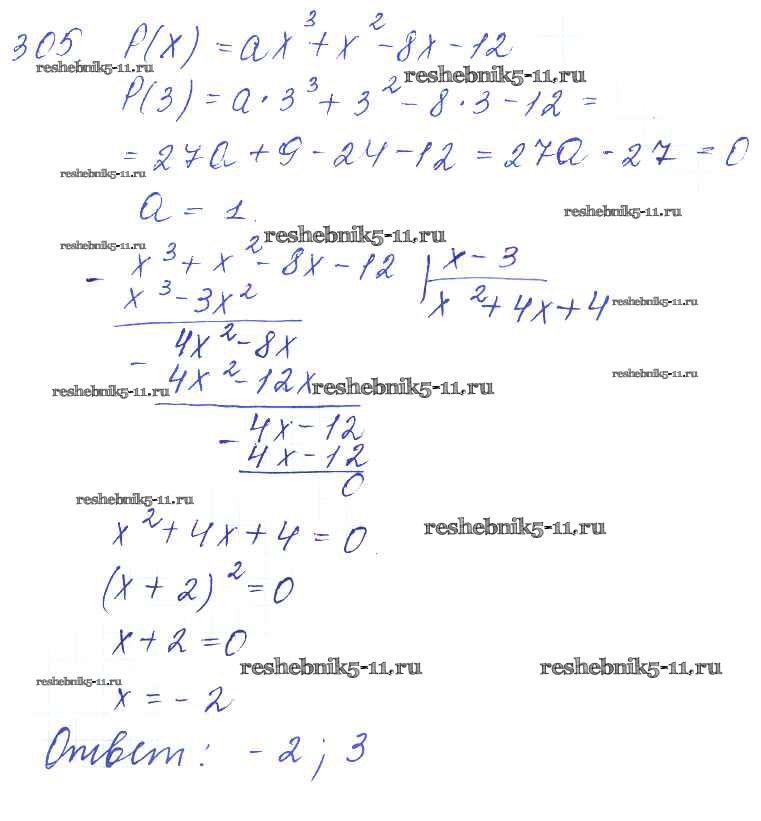 305 P(x) = ax³ + x² - 8x - 12
reshebnik5-11.ru reshebnik5-11.ru
P(3) = a · 3³ + 3² - 8 · 3 - 12 =
= 27a + 9 - 24 - 12 = 27a - 27 = 0
reshebnik5-11.ru
a = 1. reshebnik5-11.ru
reshebnik5-11.ru reshebnik5-11.ru
- x³ + x² - 8x - 12 | x - 3
x³ - 3x² x² + 4x + 4 reshebnik5-11.ru
- 4x² - 8x
reshebnik5-11.ru
4x² - 12x
reshebnik5-11.ru reshebnik5-11.ru
- 4x - 12
4x - 12
0
reshebnik5-11.ru
x² + 4x + 4 = 0 reshebnik5-11.ru
(x + 2)² = 0
x + 2 = 0
reshebnik5-11.ru reshebnik5-11.ru
reshebnik5-11.ru
x = - 2
Ответ: - 2 ; 3